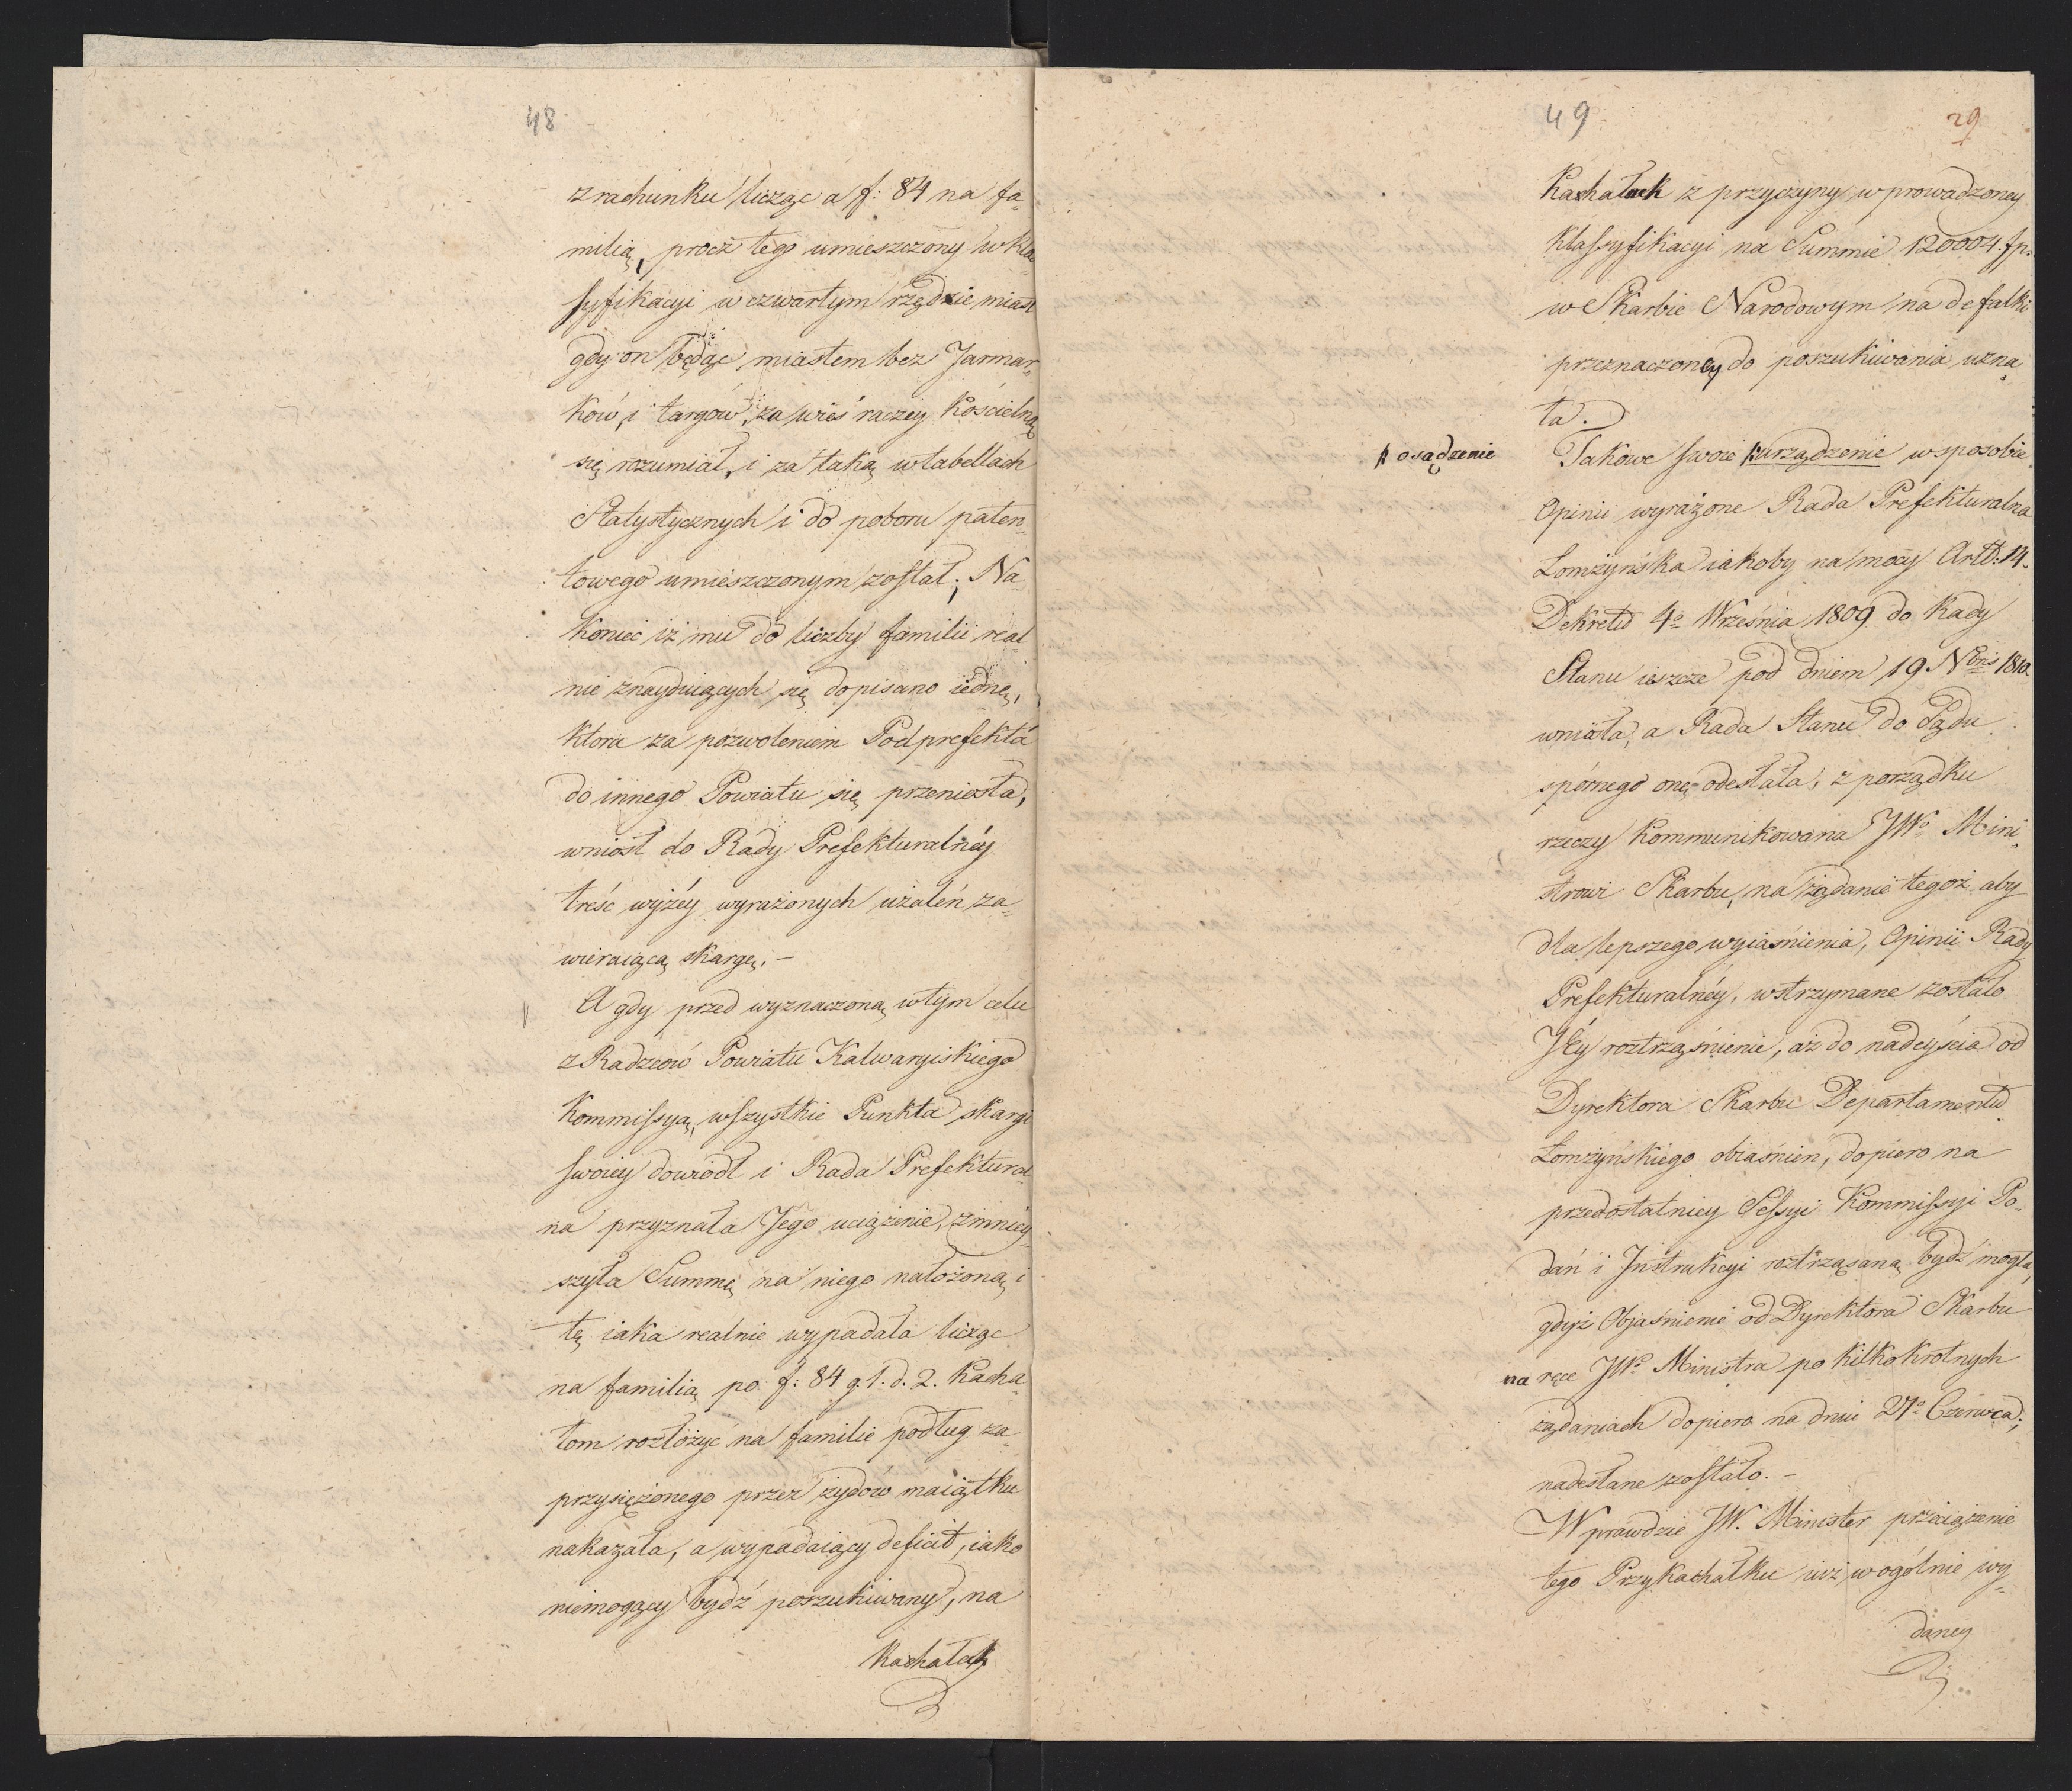 48
z rachunku licząc a f: 84 na fa-
milią, procz tego umieszczony w kla-
ssyfikacyi w czwartym rzędzie miast
gdy on będąc miastem bez Jarmar-
ków, i targów, za wieś raczey Kościelną
się rozumiał, i za taką w tabellach
Statystycznych i do poboru paten-
towego umieszczonym został; Na-
koniec iż mu do liczby familii real-
nie znayduiących się dopisano iednę,
ktora za pozwoleniem Podprefekta
do innego Powiatu się przeniosła,
wniosł do Rady Prefekturalnéy
treść wyżéy wyrażonych użaleń za-
wieraiącą skargę. –
A gdy przed wyznaczoną w tym celu
z Radzców Powiatu Kalwaryiskiego
Kommissyą, wszystkie Punkta skargi
swoiey dowiódł i Rada Prefektural-
na przyznała Jego uciążenie, zmniey-
szyła Summę na niego nałożoną i
tę iaka realnie wypadała licząc
na familią po f: 84 g. 1. d. 2. Kacha-
łom rozłożyć na familie podług za-
przysiężonego przez żydów maiątku
nakazała, a wypadaiący deficit, iako
niemogący bydź poszukiwany, na
Kachałach
49
29
Kachałach z przyczyny wprowadzoney
Klassyfikacyi na Summie 120004. fp.
w Skarbie Narodowym na defalki
przeznaczoney do poszukiwania uzna-
ła.
posądzenie
Takowe swoie purządzenie w sposobie
Opinii wyrażone Rada Prefekturalna
Łomżyńska iakoby na mocy Artt: 14.
Dekretu 4o Września 1809 do Rady
Stanu ieszcze pod dniem 19 Nbris 1810.
wniosła, a Rada Stanu do Sądu
spórnego onę odesłała; z porządku
rzeczy Kommunikowana JWo Mini-
strowi Skarbu, na żądanie tegoż aby
dla lepszego wyiaśnienia, Opinii Rady
Prefekturalnéy, wstrzymane zostało
Jéy roztrząśnienie, aż do nadeyścia od
Dyrektora Skarbu Departamentu
Łomżyńskiego obiaśnień, dopiero na
przedostatniey Sessyi Kommissyi Po-
dań i Instrukcyi roztrząsaną bydź mogła,
gdyż Objaśnienie od Dyrektora Skarbu
na ręce JWo Ministra po kilkokrotnych
żądaniach dopiero na dniu 21o Czerwca,
nadesłane zostało. –
Wprawdzie JW. Minister przeciążenie
tego Przykachałku iuż w ogólnie wy-
daney